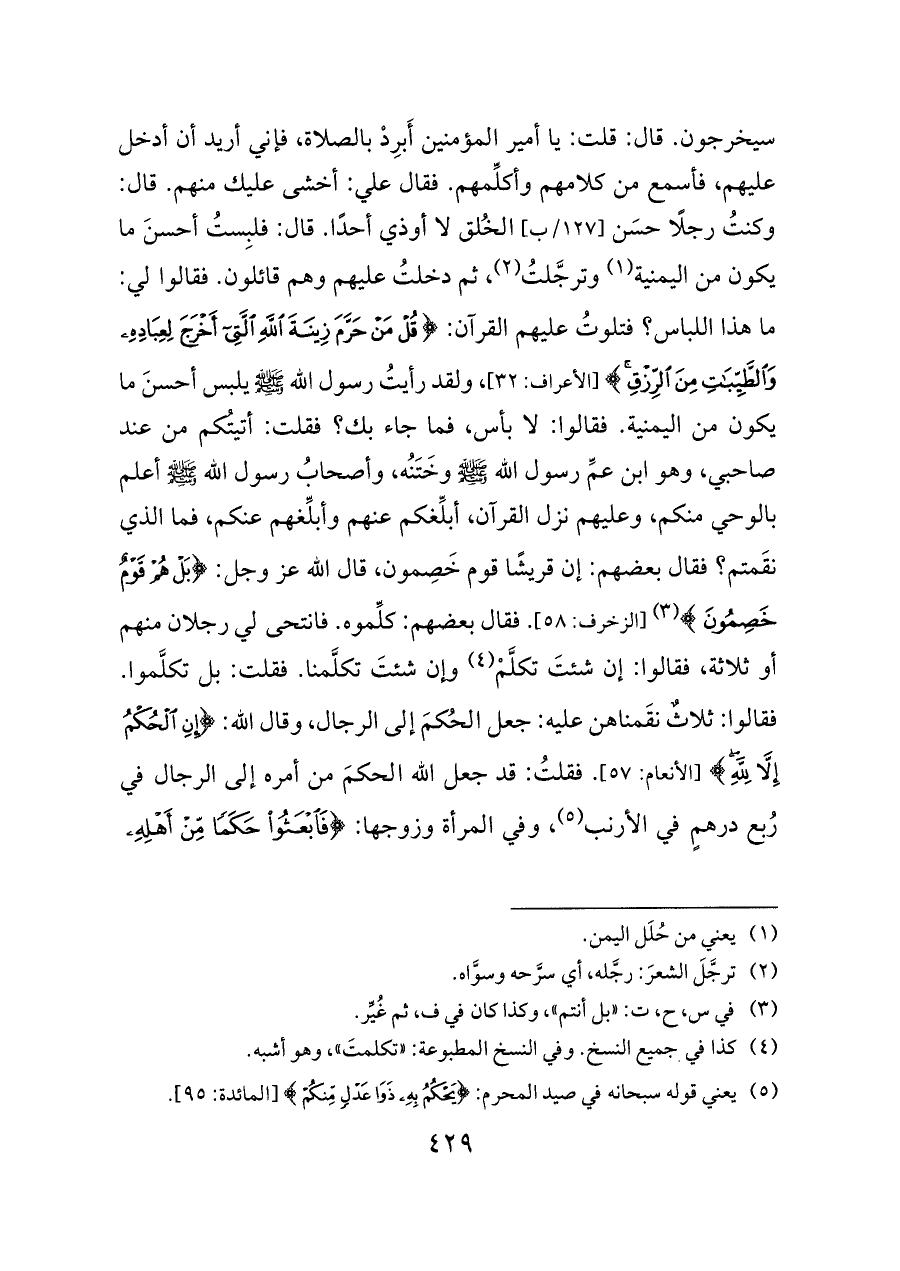 سيخرجون. قال: قلت: يا أمير المؤمنين أَبرِدْ بالصلاة، فإني أريد أن أدخل
عليهم، فأسمع من كلامهم وأكلِّمهم. فقال علي: أخشى عليك منهم. قال:
وكنتُ رجلًا حسَن [١٢٧/ ب] الخُلق لا أوذي أحدًا. قال: فلبِستُ أحسنَ ما
يكون من اليمنية(١) وترجَّلتُ(٢)، ثم دخلتُ عليهم وهم قائلون. فقالوا لي:
ما هذا اللباس؟ فتلوتُ عليهم القرآن: ﴿قُلۡ مَنۡ حَرَّمَ زِينَةَ ٱللَّهِ ٱلَّتِيٓ أَخۡرَجَ لِعِبَادِهِۦ
وَٱلطَّيِّبَٰتِ مِنَ ٱلرِّزۡقِۚ﴾ [الأعراف: ٣٢]، ولقد رأيتُ رسول الله ﷺ يلبس أحسنَ ما
يكون من اليمنية. فقالوا: لا بأس، فما جاء بك؟ فقلت: أتيتُكم من عند
صاحبي، وهو ابن عمِّ رسول الله ﷺ وخَتَنُه، وأصحابُ رسول الله ﷺ أعلم
بالوحي منكم، وعليهم نزل القرآن، أبلِّغكم عنهم وأبلِّغهم عنكم، فما الذي
نقَمتم؟ فقال بعضهم: إن قريشًا قوم خَصِمون، قال الله عز وجل: ﴿بَلۡ هُمۡ قَوۡمٌ
خَصِمُونَ﴾(٣) [الزخرف: ٥٨]. فقال بعضهم: كلِّموه. فانتحى لي رجلان منهم
أو ثلاثة، فقالوا: إن شئتَ تكلَّمْ(٤) وإن شئتَ تكلَّمنا. فقلت: بل تكلَّموا.
فقالوا: ثلاثٌ نقَمناهن عليه: جعل الحُكمَ إلى الرجال، وقال الله: ﴿إِنِ ٱلۡحُكۡمُ
إِلَّا لِلَّهِۖ﴾ [الأنعام: ٥٧]. فقلتُ: قد جعل الله الحكمَ من أمره إلى الرجال في
رُبع درهمٍ في الأرنب(٥)، وفي المرأة وزوجها: ﴿فَٱبۡعَثُواْ حَكَمٗا مِّنۡ أَهۡلِهِۦ
(١) يعني من حُلَل اليمن.
(٢) ترجَّلَ الشعرَ: رجَّله، أي سرَّحه وسوَّاه.
(٣) في س، ح، ت: «بل أنتم»، وكذا كان في ف، ثم غُيِّر.
(٤) كذا في جميع النسخ. وفي النسخ المطبوعة: «تكلمتَ»، وهو أشبه.
(٥) يعني قوله سبحانه في صيد المحرم: ﴿يَحۡكُمُ بِهِۦ ذَوَا عَدۡلٖ مِّنكُمۡ﴾ [المائدة: ٩٥].
٤٢٩